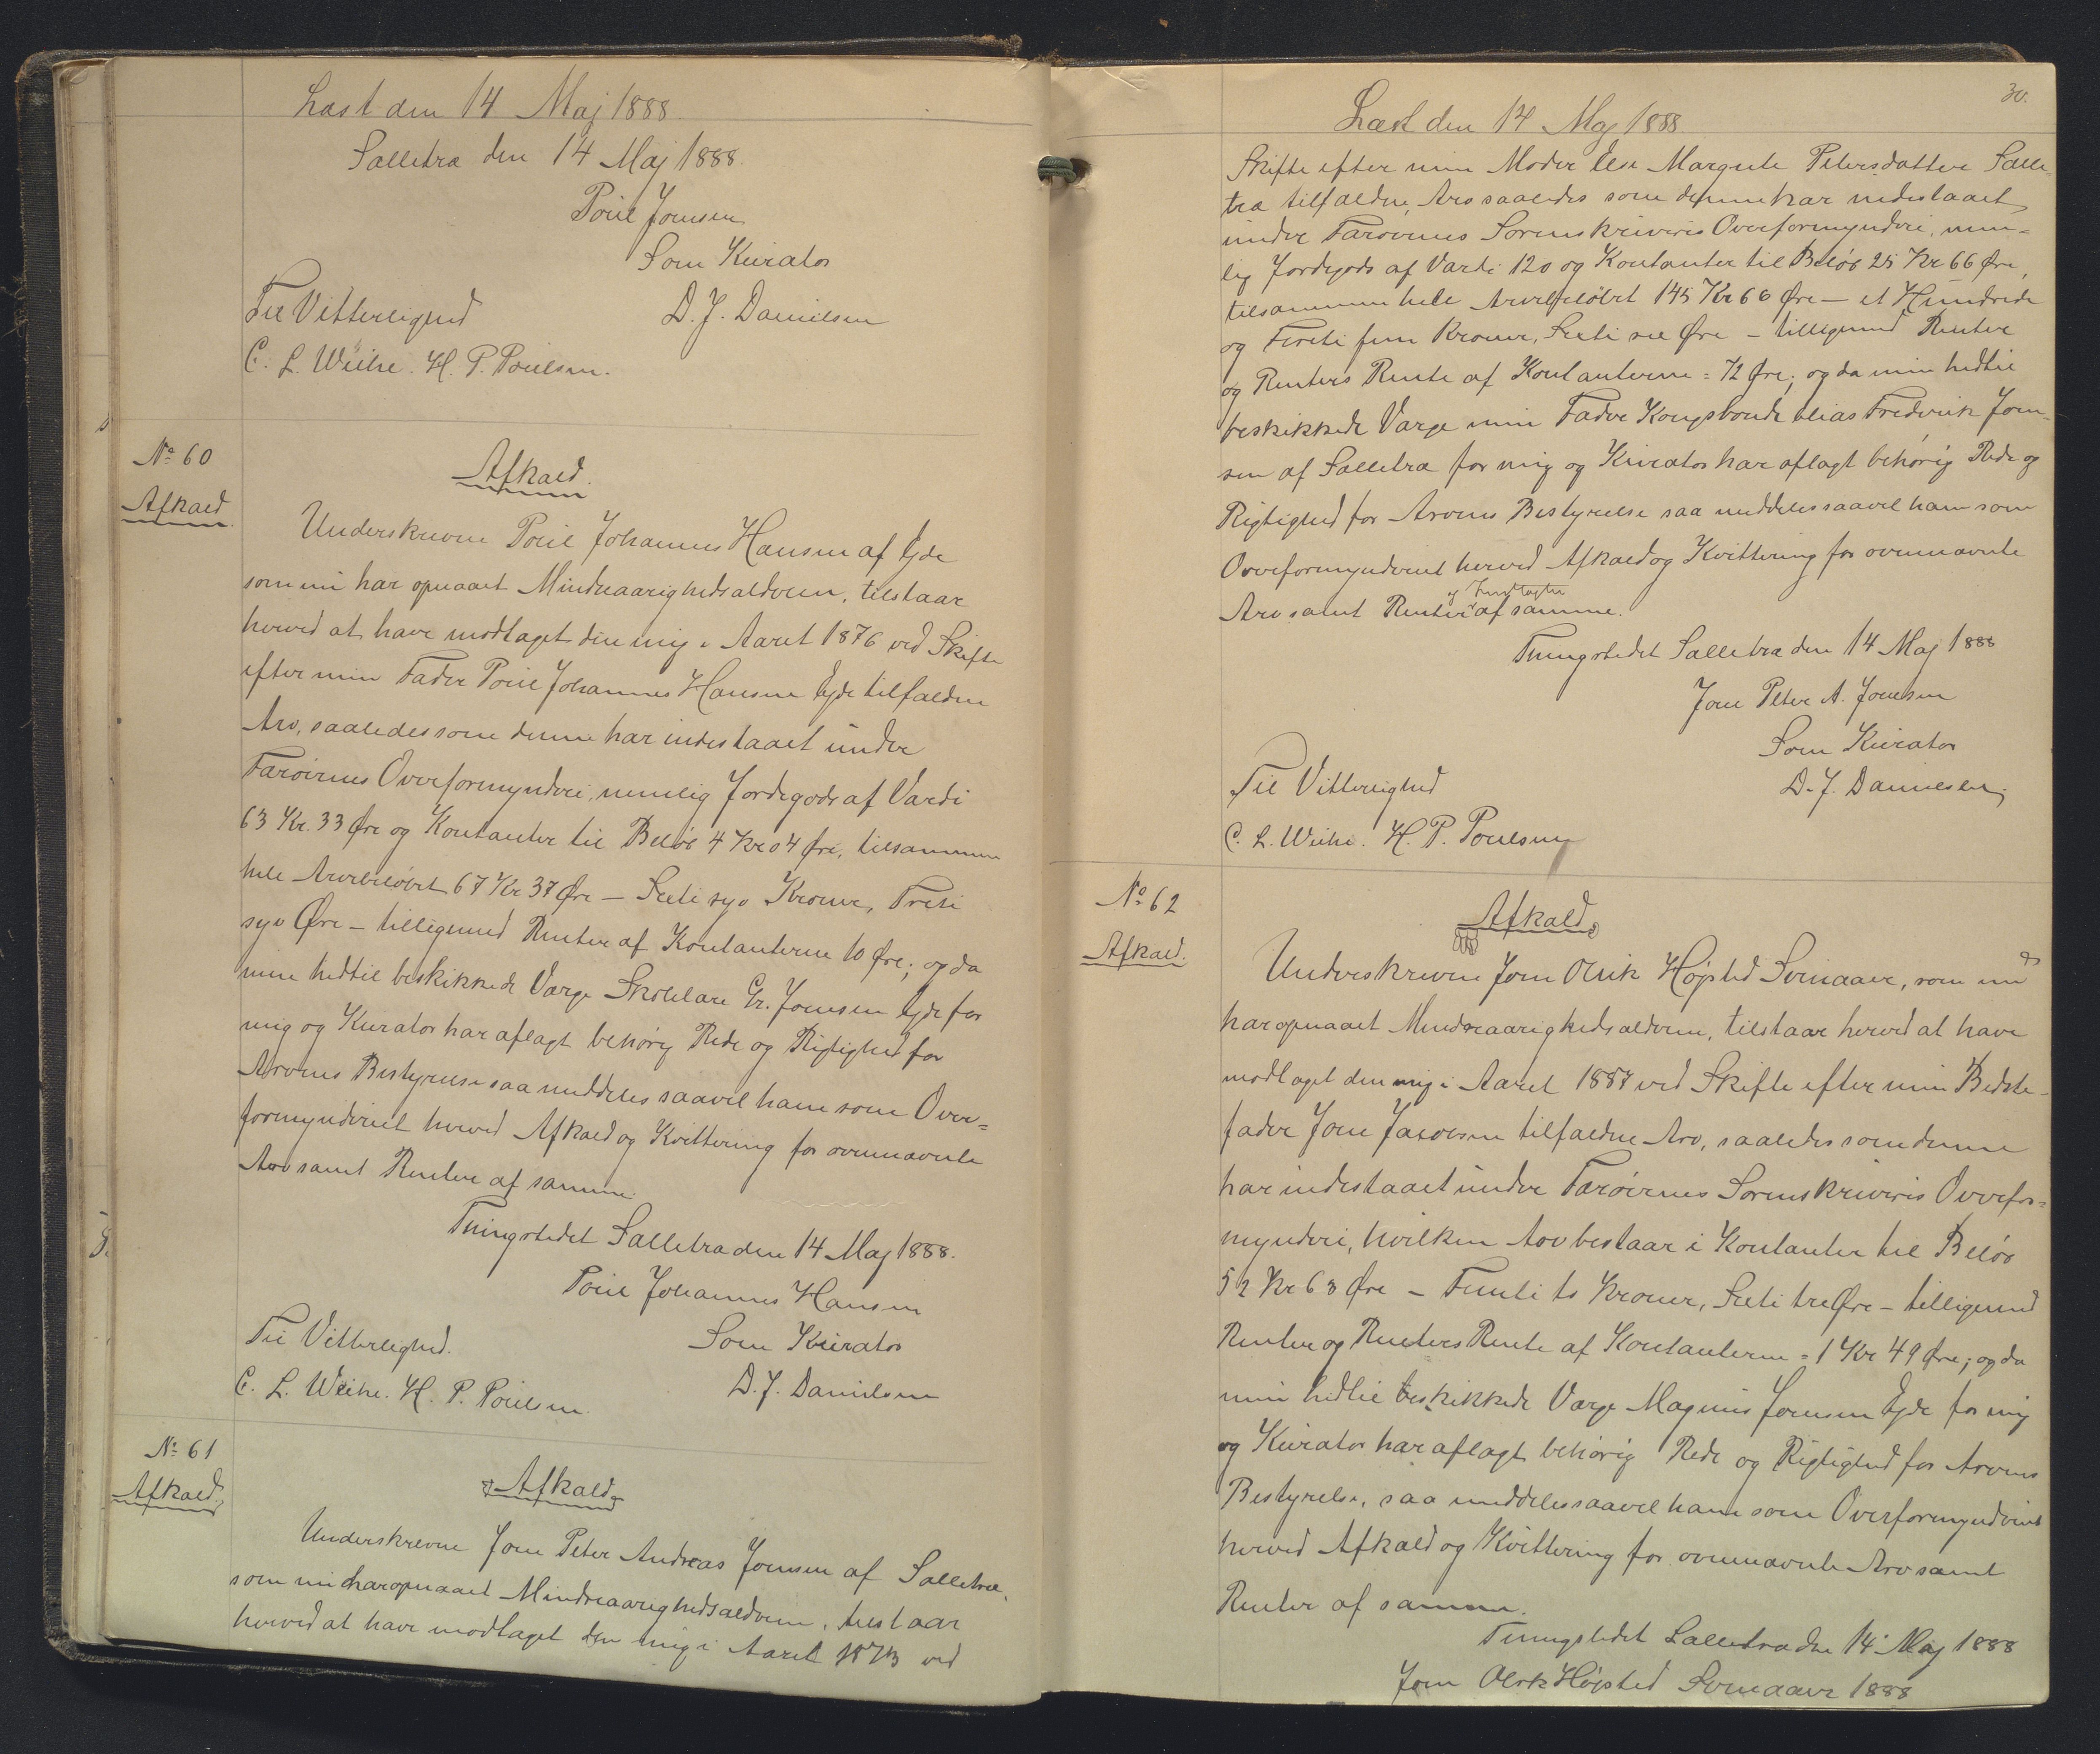 Læst den 14 Maj 1888
Salletræ den 14 Maj 1888.
Poul Joensen
Som Kurator
Til Vitterlighed
D. J. Danielsen
C. L. Weihe. H. P. Poulsen.
No 60
Afkald
Afkald.
Underskrevne Poul Johannes Hansen af Ejde
som nu har opnaaet Mindreaarighedsalderen, tilstaar
herved at have modtaget den mig i Aaret 1876 ved Skifte
efter min Fader Poul Johannes Hansen Ejde tilfaldne
Arv, saaledes som denne har indestaaet under
Færøernes Overformynderi, nemlig Jordegods af Værdi
63 Kr. 33 Øre og Kontanter til Beløb 4 Kr 04 Øre, tilsammen
hele Arvebeløbet 67 Kr 37 Øre — Seeti syv Kroner, Treti
syv Øre — tilligemed Renter af Kontanterne 10 Øre; og da
min hidtil beskikkede Værge Skolelærer Gr. Joensen Ejde for
mig og Kurator har aflagt behørig Rede og Rigtighed for
Arvens Bestyrelse saa meddeles saavel ham som Over=
formynderiet herved Afkald og Kvittering for ovennævnte
Arv samt Renter af samme.
Thingstedet Salletræ den 14 Maj 1888.
Poul Johannes Hansen
Til Vitterlighed.
Som Kurator
C. L. Weihe. H. P. Poulsen.
D. J. Danielsen
No 61
Afkald
Afkald
Underskrevne Joen Peter Andreas Joensen af Salletræ,
som nu har opnaaet Mindreaarighedsalderen, tilstaar
herved at have modtaget den mig i Aaret 1873 ved
30.
Læst den 14 Maj 1888
Skifte efter min Moder Else Margrete Petersdatter Salle-
træ tilfaldne Arv saaledes som denne har indestaaet
under Færøernes Sorenskriveris Overformynderi, nem-
lig Jordegods af Værdi 120 og Kontanter til Beløb 25 Kr 66 Øre,
tilsammen hele Arvebeløbet 145 Kr 66 Øre — et Hundrede
og Firti fem Kroner, Seeti sex Øre — tilligemed Renter
og Renters Rente af Kontanterne = 72 Øre; og da min hidtil
beskikkede Værge min Fader Kongsbonde Elias Frederik Joen-
sen af Salletræ for mig og Kurator har aflagt behørig Rede og
Rigtighed for Arvens Bestyrelse saa meddeles saavel ham som
Overformynderiet herved Afkald og Kvittering for ovennævnte
og Indtægter
Arv samt Renter af samme.
Thingstedet Salletræ den 14 Maj 1888
Joen Peter A. Joensen
Som Kurator
Til Vitterlighed
D. J. Danielsen
C. L. Weihe. H. P. Poulsen
No 62
Afkald.
Afkald
Underskrevne Joen Olrik Højsted Svinaaer, som nu
har opnaaet Mindreaarighedsalderen, tilstaar herved at have
modtaget den mig i Aaret 1887 ved Skifte efter min Bedste-
fader Joen Jacobsen tilfaldne Arv, saaledes som denne
har indestaaet under Færøernes Sorenskriveris Overfor=
mynderi, hvilken Arv bestaar i Kontanter til Beløb
52 Kr 63 Øre — Femti to Kroner, Seeti tre Øre — tilligemed
Renter og Renters Rente af Kontanterne = 1 Kr 49 Øre; og da
min hidtil beskikkede Værge Magnus Joensen Ejde for mig
og Kurator har aflagt behørig Rede og Rigtighed for Arvens
Bestyrelse, saa meddeles saavel ham som Overformynderiet
herved Afkald og Kvittering for ovennævnte Arv samt
Renter af samme.
Thingstedet Salletræ den 14 Maj 1888
Joen Olrik Højsted Svinaaer 1888